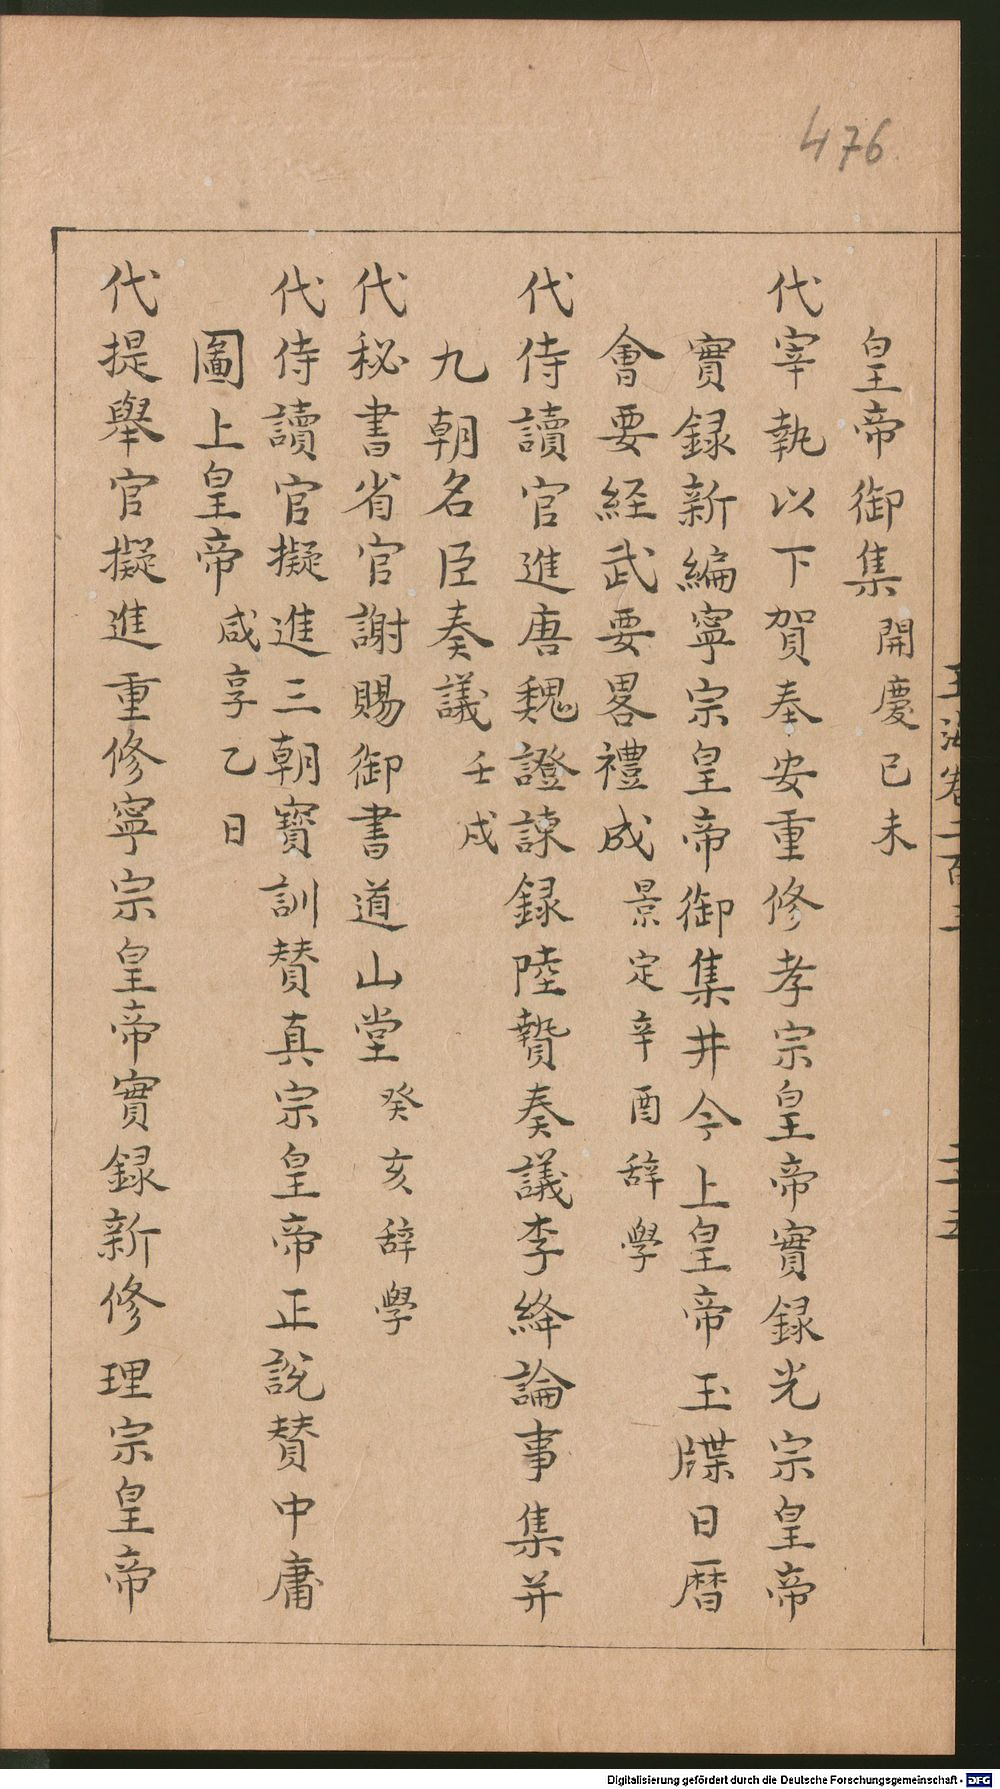 476
皇帝御集開慶已未
代宰執以下賀奉安重修孝宗皇帝實録光宗皇帝
實録新編寧宗皇帝御集井今上皇帝玉牒日暦
會要経武要畧禮成景定辛酉辞學
代侍讀官進唐魏證諫録陸贄奏議李絳論事集并
九朝名臣奏議壬戌
代秘書省官謝賜御書道山堂癸亥辞學
代侍讀官擬進三朝寳訓賛真宗皇帝正説賛中庸
圖上皇帝咸享乙日
代提舉官擬進重修寧宗皇帝實録新修理宗皇帝
Digitalisierung gefördert durch die Deutsche Forschungsgemeinschaft - DFG